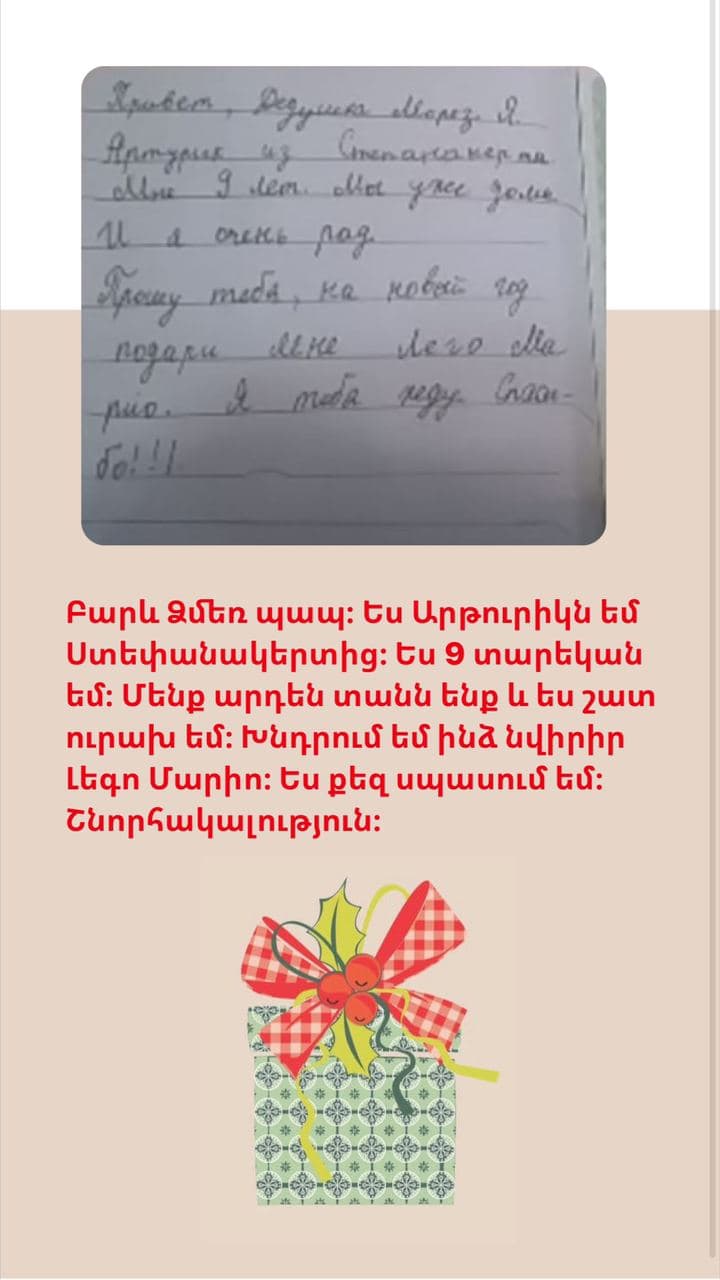 Привет, Дедушка Мороз. Я
Артурик из Степанакерта
Мне 9 лет. Мы уже дома
И я очень рад.
Прошу тебя, на новый год
подари мне Лего Ма
рио. Я тебя жду. Спаси-
бо!!!
Բարև Ձմեռ պապ: Ես Արթուրիկն եմ
Ստեփանակերտից: Ես 9 տարեկան
եմ: Մենք արդեն տանն ենք և ես շատ
ուրախ եմ: Խնդրում եմ ինձ նվիրիր
Լեգո Մարիո: Ես քեզ սպասում եմ:
Շնորհակալություն: